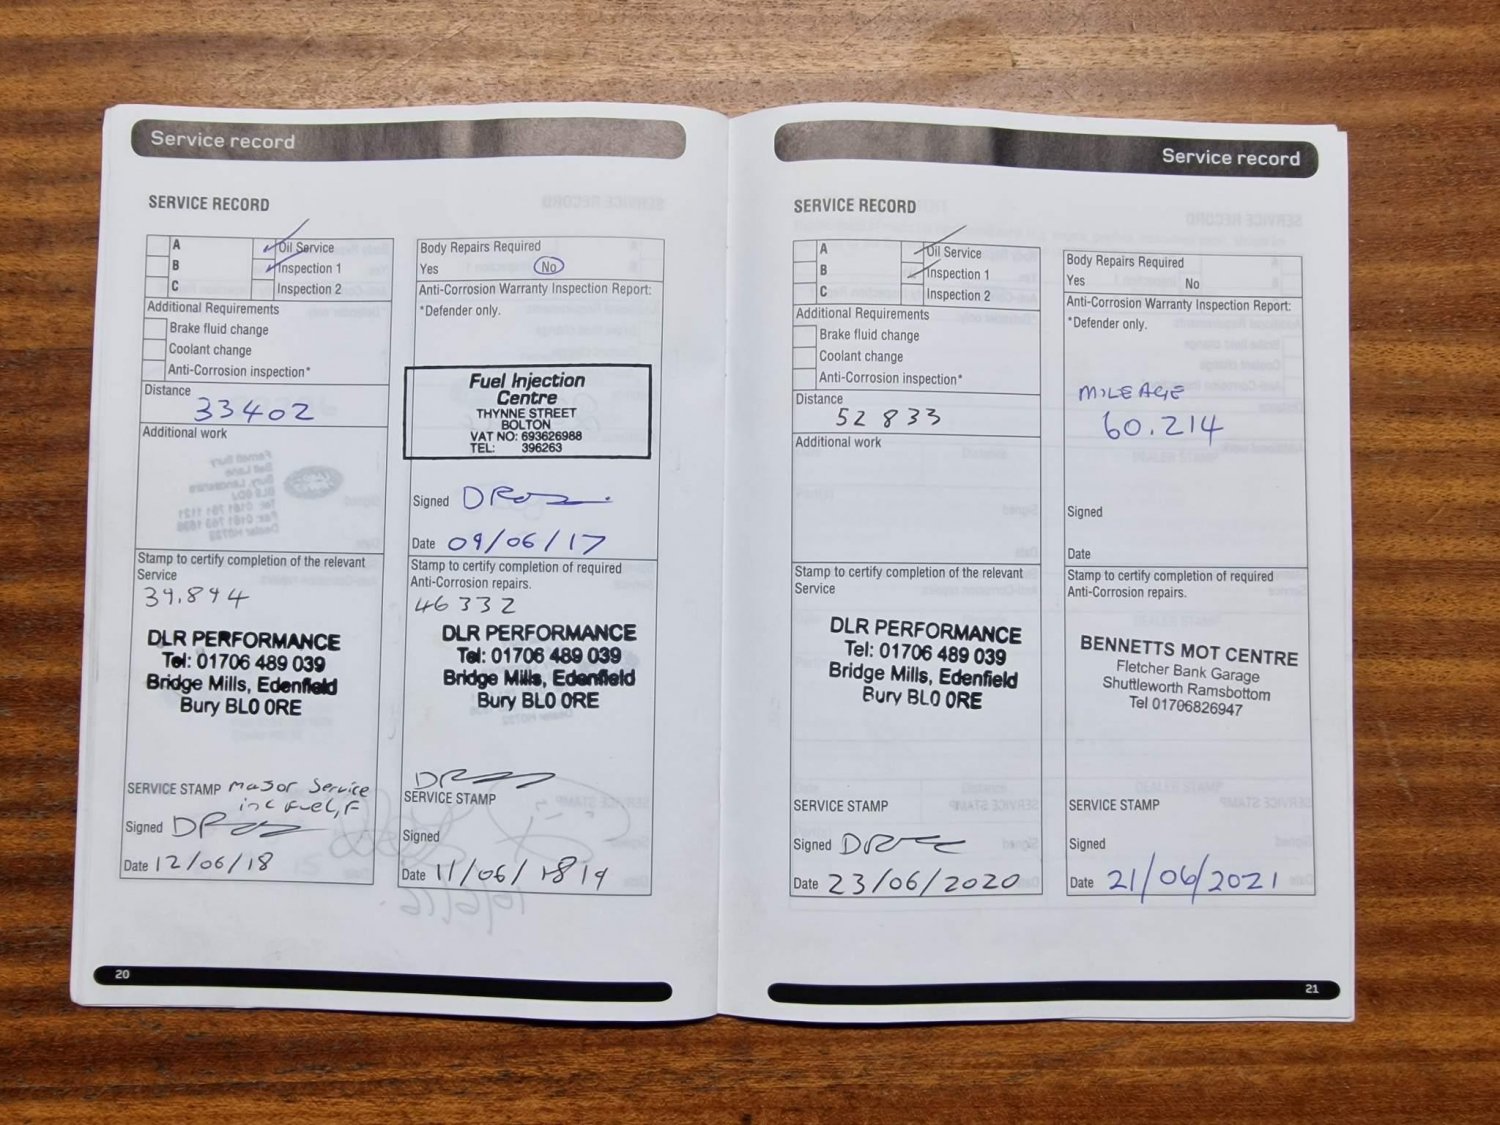 Service record
SERVICE RECORD
A
B
C
Oil Service
Inspection 1
Inspection 2
Additional Requirements
Brake fluid change
Coolant change
Anti-Corrosion inspection*
Distance
33402
Additional work
Stamp to certify completion of the relevant
Service
39.894
DLR PERFORMANCE
Tel: 01706 489 039
Bridge Mills, Edenfield
Bury BL0 0RE
SERVICE STAMP Major Service
inc Fuel, F
Signed
Date 12/06/18
Body Repairs Required
Yes No
Anti-Corrosion Warranty Inspection Report:
*Defender only.
Fuel Injection
Centre
THYNNE STREET
BOLTON
VAT NO: 693626988
TEL: 396263
Signed
Date 09/06/17
Stamp to certify completion of required
Anti-Corrosion repairs.
46332
DLR PERFORMANCE
Tel: 01706 489 039
Bridge Mills, Edenfield
Bury BL0 0RE
SERVICE STAMP
Signed
Date 11/06/1819
20
Service record
SERVICE RECORD
A
B
C
Oil Service
Inspection 1
Inspection 2
Additional Requirements
Brake fluid change
Coolant change
Anti-Corrosion inspection*
Distance
52833
Additional work
Stamp to certify completion of the relevant
Service
DLR PERFORMANCE
Tel: 01706 489 039
Bridge Mills, Edenfield
Bury BL0 0RE
SERVICE STAMP
Signed
Date 23/06/2020
Body Repairs Required
Yes No
Anti-Corrosion Warranty Inspection Report:
*Defender only.
MILEAGE
60.214
Signed
Date
Stamp to certify completion of required
Anti-Corrosion repairs.
BENNETTS MOT CENTRE
Fletcher Bank Garage
Shuttleworth Ramsbottom
Tel 01706826947
SERVICE STAMP
Signed
Date 21/06/2021
21